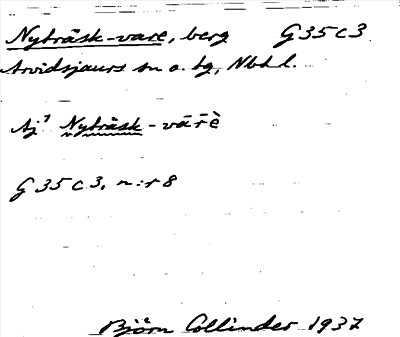 Nyträsk-vare, berg G35c3
Arvidsjaurs sn o. tg, Nbtl.
Aj¹ Nyträsk-vārè
G35c3, n:r 8
Björn Collinder 1937